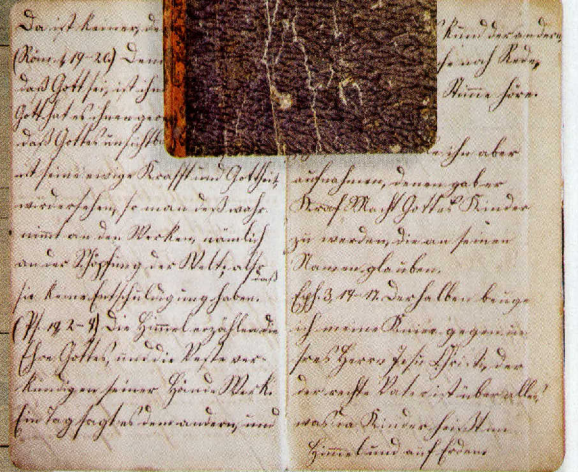 Da ist keiner, de
(Röm. 1, 19-20) Denn
daß Gott sei, ist ihn
Gott hat es ihnen geo
daß Gottes unsichtb
ist seine ewige Krafft und Gottheit,
wird ersehen, so man des wahr
nimt an den Werken, nämlich
an der Schöpfung der Welt, also
daß
sie keine Entschuldigung haben.
(Ps. 19, 2-4) Die Himmel erzählen die
Ehre Gottes, und die Veste ver-
kündigen seiner Hände Werk.
Ein Tag sagt es dem andern, und
kund der andern
he noch Rede,
Stimme höre.
ie ihn aber
aufnahmen, denen gab er
Macht Gottes Kinder
zu werden, die an seinen
Namen glauben.
Eph. 3, 14- Derhalben beuge
ich meine Kniee gegen un-
sres Herrn Jesu Christi, der
der rechte Vater ist über alles
was da Kinder heißt im
Himmel und auf Erden